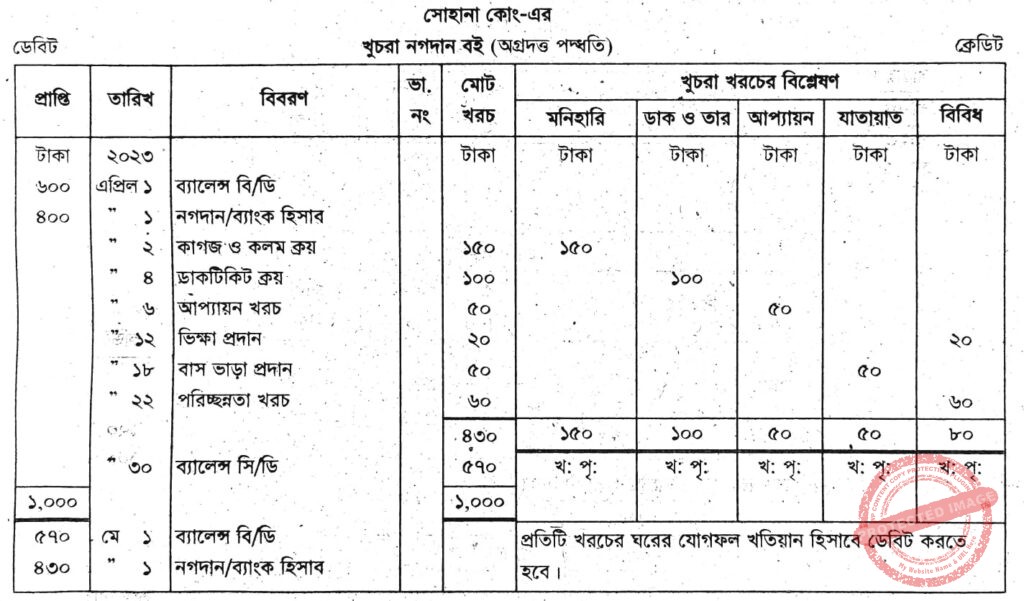 সোহানা কোং-এর
ডেবিট খুচরা নগদান বই (অগ্রদত্ত পদ্ধতি) ক্রেডিট
প্রাপ্তি তারিখ বিবরণ ভা. নং মোট খরচ খুচরা খরচের বিশ্লেষণ
মনিহারি ডাক ও তার আপ্যায়ন যাতায়াত বিবিধ
টাকা ২০২৩ টাকা টাকা টাকা টাকা টাকা টাকা
৬০০ এপ্রিল ১ ব্যালেন্স বি/ডি
৪০০ " ১ নগদান/ব্যাংক হিসাব
" ২ কাগজ ও কলম ক্রয় ১৫০ ১৫০
" ৪ ডাকটিকিট ক্রয় ১০০ ১০০
" ৬ আপ্যায়ন খরচ ৫০ ৫০
" ১২ ভিক্ষা প্রদান ২০ ২০
" ১৮ বাস ভাড়া প্রদান ৫০ ৫০
" ২২ পরিচ্ছন্নতা খরচ ৬০ ৬০
৪৩০ ১৫০ ১০০ ৫০ ৫০ ৮০
" ৩০ ব্যালেন্স সি/ডি ৫৭০ খ: পৃ: খ: পৃ: খ: পৃ: খ: পৃ: খ: পৃ:
১,০০০ ১,০০০
৫৭০ মে ১ ব্যালেন্স বি/ডি প্রতিটি খরচের ঘরের যোগফল খতিয়ান হিসাবে ডেবিট করতে
৪৩০ " ১ নগদান/ব্যাংক হিসাব হবে।